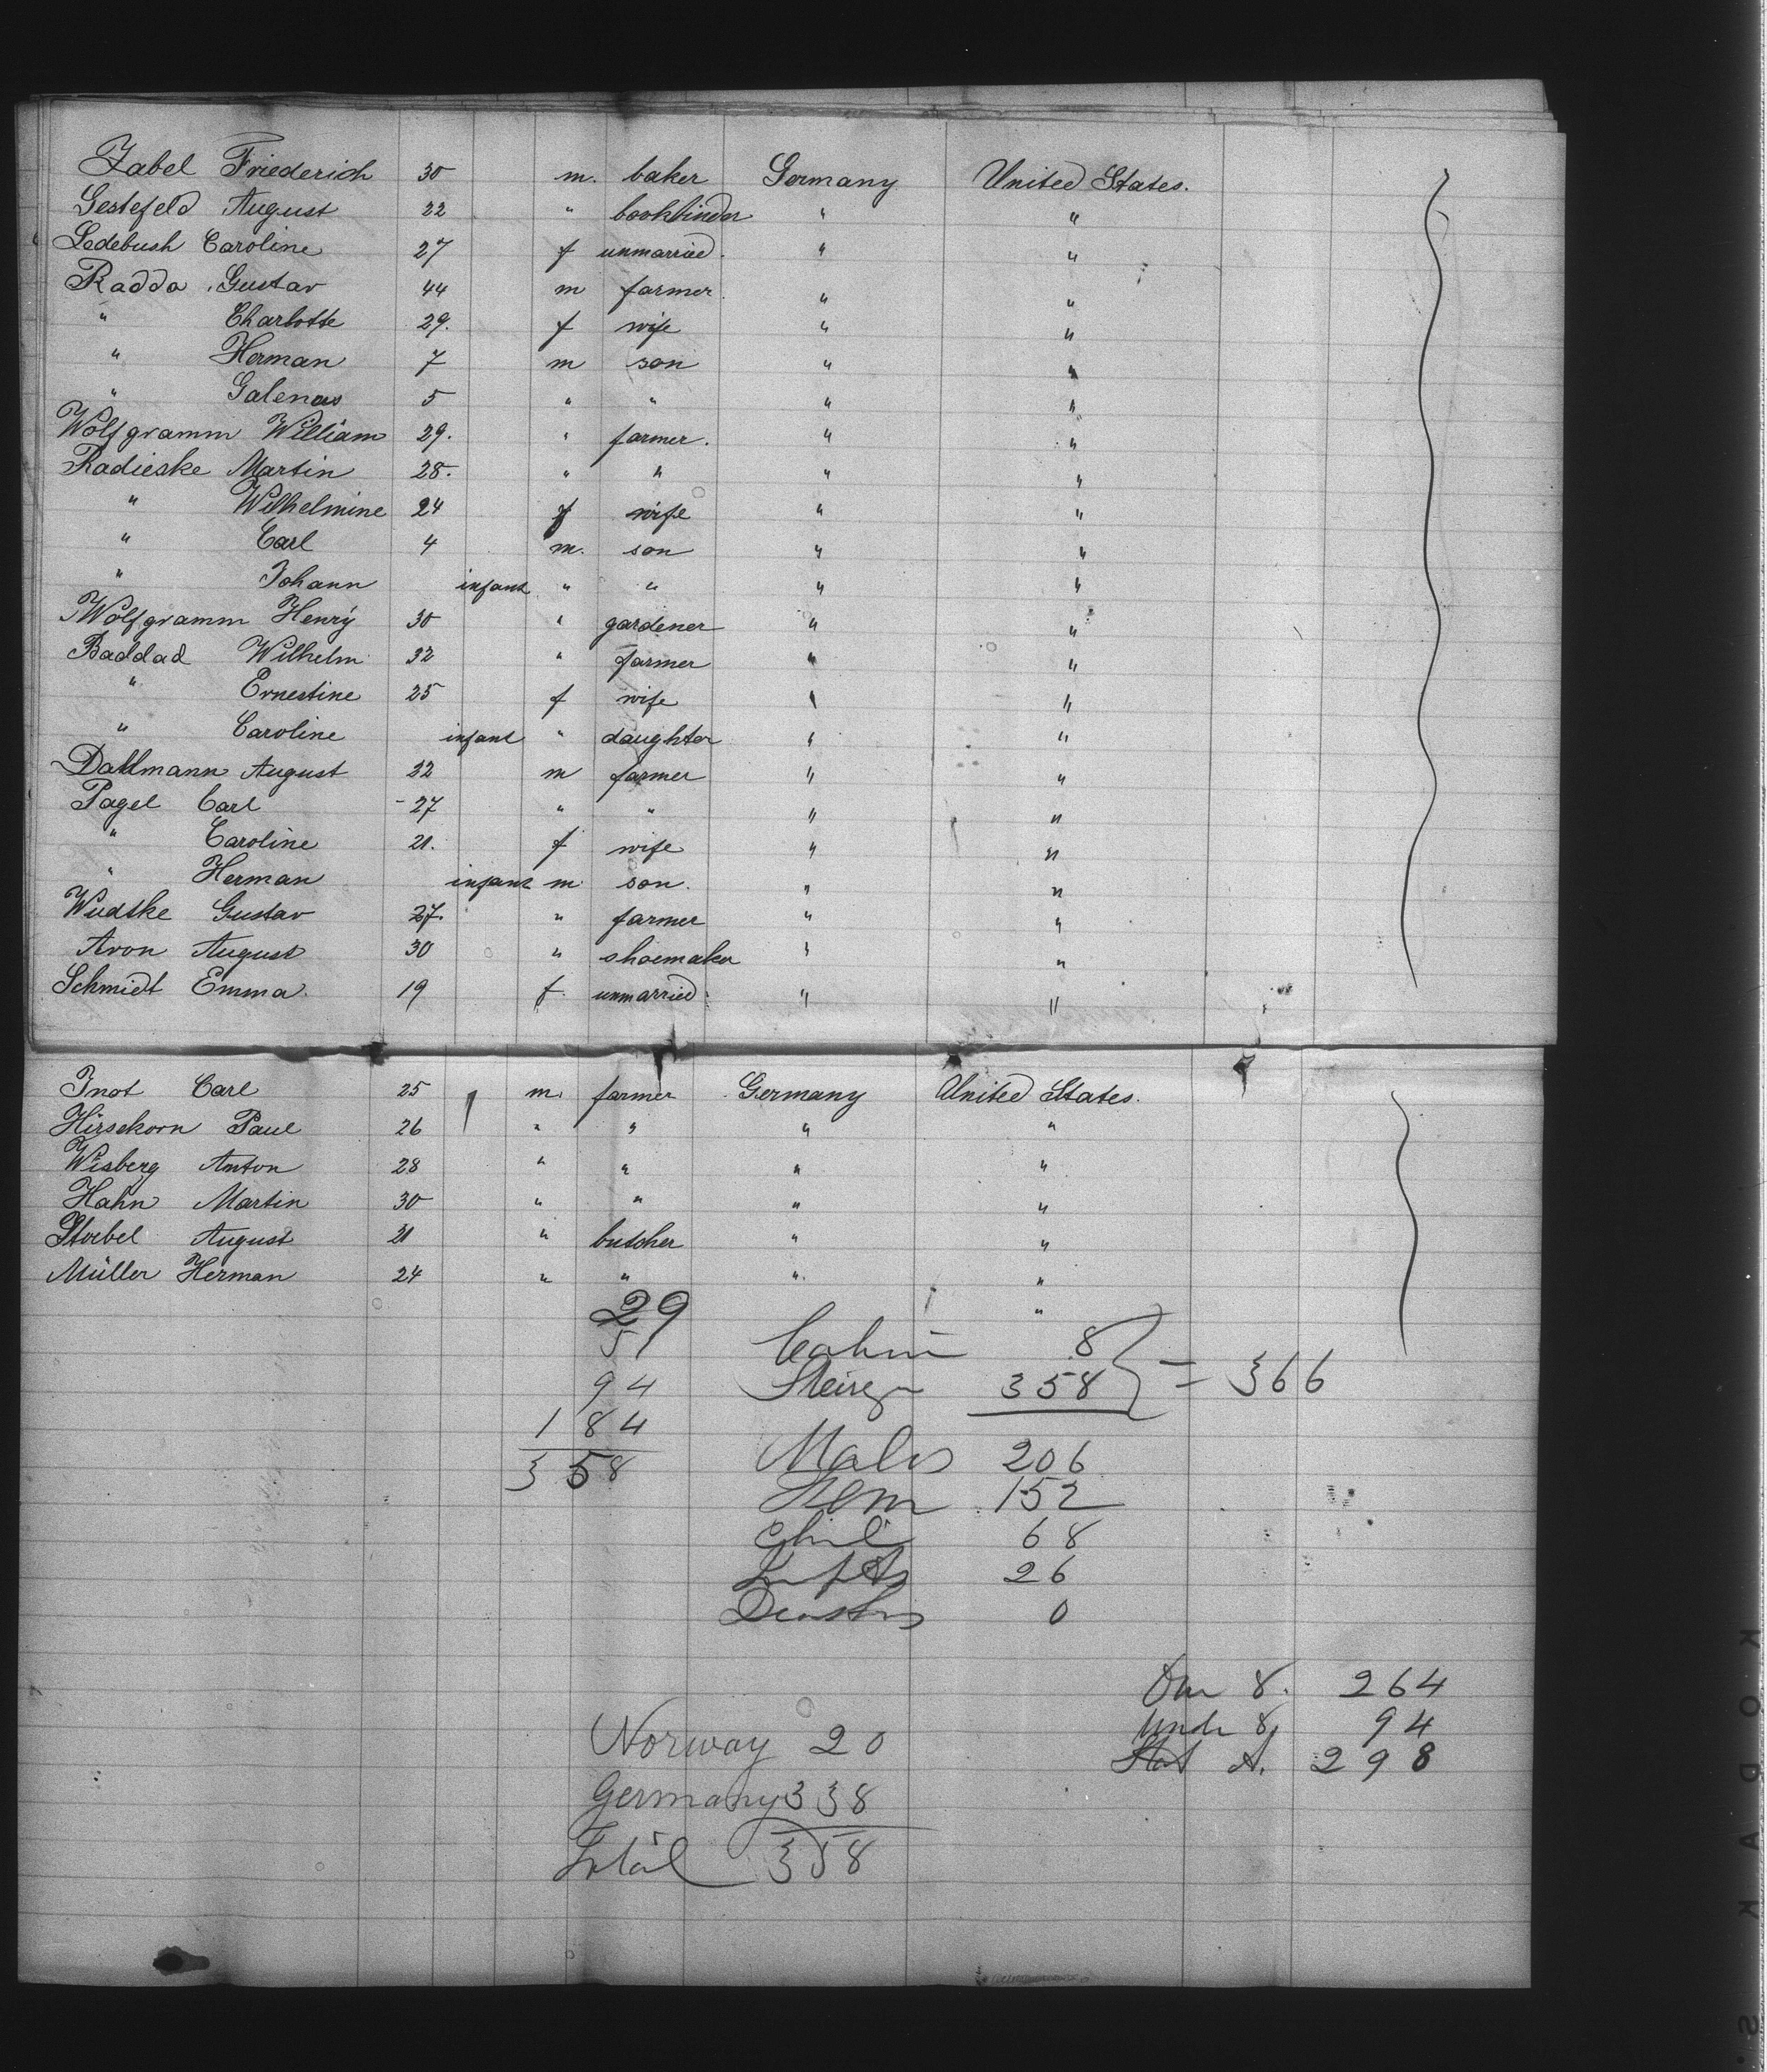 Zabel Friederich 30 m. baker Germany United States.
Gestefeld August 22 " bookbinder " "
Ledebush Caroline 27 f unmarried. " "
Radda Gustav 44 m farmer. " "
" Charlotte 29. f wife " "
" Herman 7 m son " "
" 5 " " " "
Wolfgramm William 29. " farmer. " "
Radieske Martin 28. " " " "
" Wilhelmine 24 f wife " "
" Carl 4 m. son " "
" Johann infant " " " "
Wolfgramm Henry 30 " gardener " "
Baddad Wilhelm 32 " farmer " "
" Ernestine 25 f wife " "
" Caroline infant " daughter " "
Dallmann August 32 m farmer " "
Pagel Carl 27 " " " "
" Caroline 21. f wife " "
" Herman infant m son. " "
Wudtke Gustav 27. " farmer " "
Aron August 30 " shoemaker " "
Schmidt Emma. 19 f. unmarried. " "
Inot Carl 25 m. farmer Germany United States.
Hirsekorn Paul 26 " " " "
Wisberg Anton 28 " " " "
Hahn Martin 30 " " " "
August 21 " butcher " "
Müller Herman 24 " " " "
29 "
51 Cabin 8
94 Steerage 358 = 366
184
358 Males 206
Fem 152
Chil 68
Infts 26
Deaths 0
Over 8. 264
Norway 20 Undr 8, 94
A. 298
Germany 338
Total 358
KODAK S.